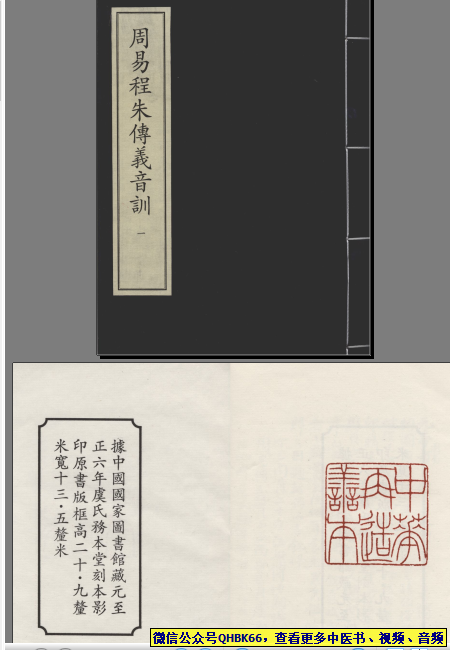 周易程朱傳義音訓
一
中華
再造
善本
據中國國家圖書館藏元至
正六年虞氏務本堂刻本影
印原書版框高二十·九釐
米寬十三·五釐米
微信公众号QHBK66，查看更多中医书、视频、音频